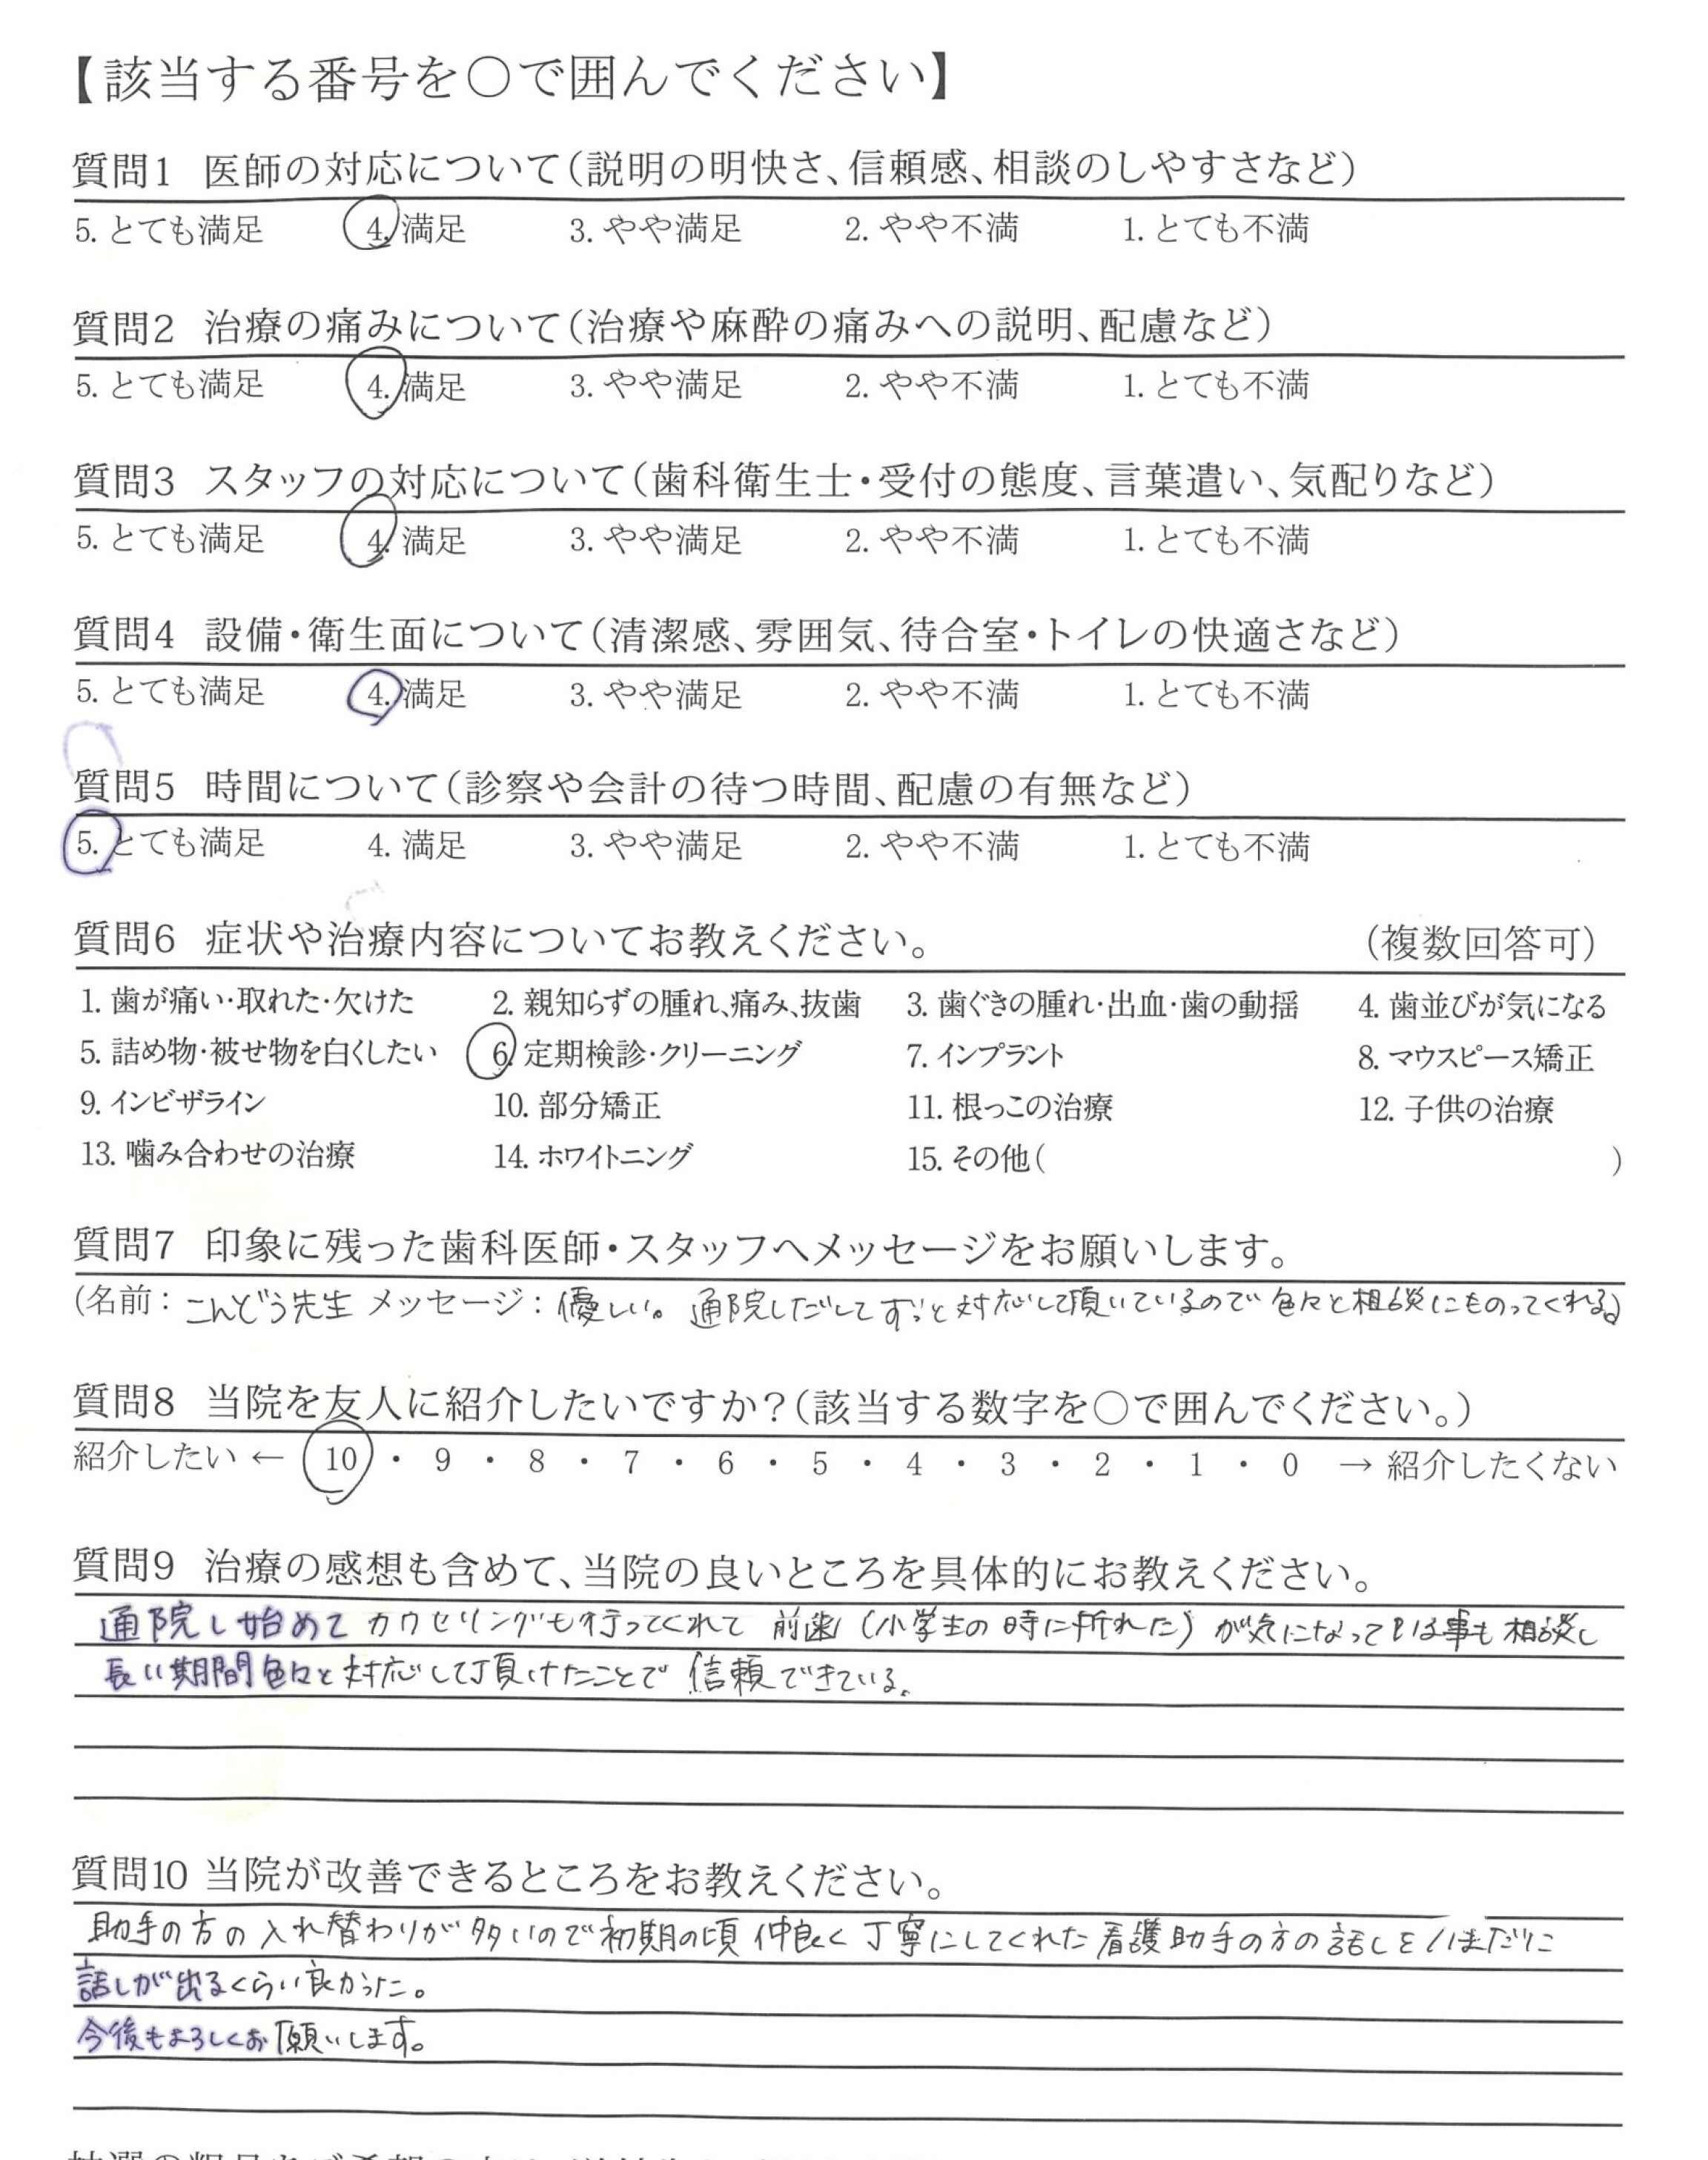 【該当する番号を○で囲んでください】
質問1 医師の対応について(説明の明快さ、信頼感、相談のしやすさなど)
5. とても満足 4. 満足 3. やや満足 2. やや不満 1. とても不満
質問2 治療の痛みについて(治療や麻酔の痛みへの説明、配慮など)
5. とても満足 4. 満足 3. やや満足 2. やや不満 1. とても不満
質問3 スタッフの対応について(歯科衛生士・受付の態度、言葉遣い、気配りなど)
5. とても満足 4. 満足 3. やや満足 2. やや不満 1. とても不満
質問4 設備・衛生面について(清潔感、雰囲気、待合室・トイレの快適さなど)
5. とても満足 4. 満足 3. やや満足 2. やや不満 1. とても不満
質問5 時間について(診察や会計の待つ時間、配慮の有無など)
5. とても満足 4. 満足 3. やや満足 2. やや不満 1. とても不満
質問6 症状や治療内容についてお教えください。 (複数回答可)
1. 歯が痛い・取れた・欠けた 2. 親知らずの腫れ、痛み、抜歯 3. 歯ぐきの腫れ・出血・歯の動揺 4. 歯並びが気になる
5. 詰め物・被せ物を白くしたい 6. 定期検診・クリーニング 7. インプラント 8. マウスピース矯正
9. インビザライン 10. 部分矯正 11. 根っこの治療 12. 子供の治療
13. 噛み合わせの治療 14. ホワイトニング 15. その他( )
質問7 印象に残った歯科医師・スタッフへメッセージをお願いします。
(名前: こんどう先生 メッセージ: 優しい。通院しだしてずっと対応して頂いているので色々と相談にものってくれる。)
質問8 当院を友人に紹介したいですか?(該当する数字を○で囲んでください。)
紹介したい ← 10 ・ 9 ・ 8 ・ 7 ・ 6 ・ 5 ・ 4 ・ 3 ・ 2 ・ 1 ・ 0 → 紹介したくない
質問9 治療の感想も含めて、当院の良いところを具体的にお教えください。
通院し始めてカウセリングも行ってくれて 前歯(小学生の時に折れた)が気になって 事も相談し
長い期間色々と対応して頂けたことで 信頼できている。
質問10 当院が改善できるところをお教えください。
助手の方の入れ替わりが多いので初期の頃 仲良く丁寧にしてくれた看護助手の方の話しを いまだに
話しが出るくらい良かった。
今後もよろしくお願いします。